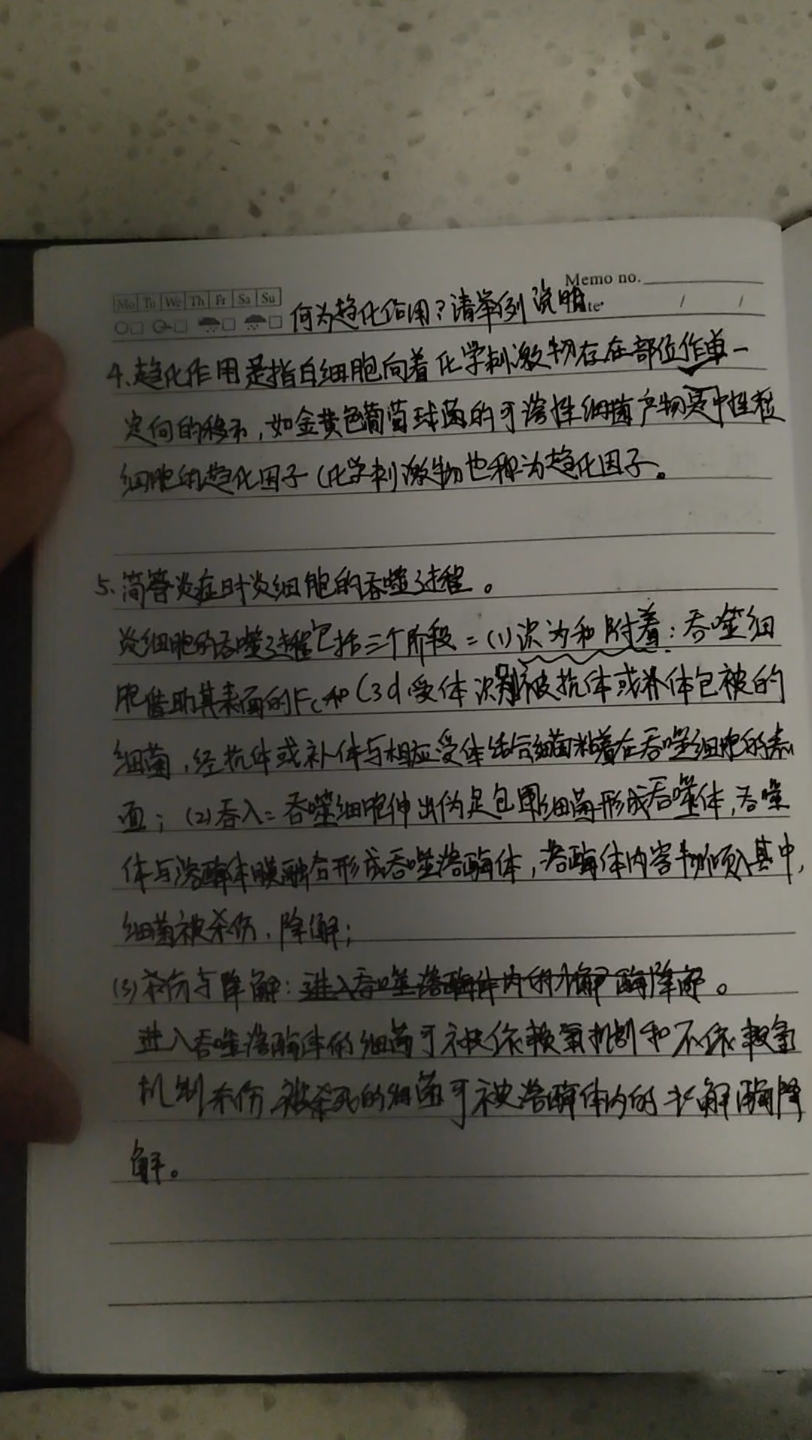 Memo no.
Mo Tu We Th Fr Sa Su
何为趋化作用?请举例说明.
4.趋化作用是指白细胞向着化学刺激物存在部位作单一
定向的移动,如金黄色葡萄球菌的可溶性细菌产物是中性粒
细胞的趋化因子(化学刺激物也称为趋化因子。
5.简答炎症时炎细胞的吞噬过程。
炎细胞的吞噬过程包括三个阶段:(1)识为和附着:吞噬细
胞借助其表面的Fc和C3d受体识别被抗体或补体包被的
细菌,经抗体或补体与相应受体结合细菌粘着在吞噬细胞的表
面;(2)吞入:吞噬细胞伸出伪足包围细菌形成吞噬体,吞噬
体与溶酶体膜融合形成吞噬溶酶体,溶酶体内容物倾入其中,
细菌被杀伤、降解;
(3)杀伤与降解:进入吞噬溶酶体内的水解酶降解。
进入吞噬溶酶体的细菌可被依赖氧机制和不依赖氧
机制杀伤,被杀死的细菌可被溶酶体内的水解酶降
解。